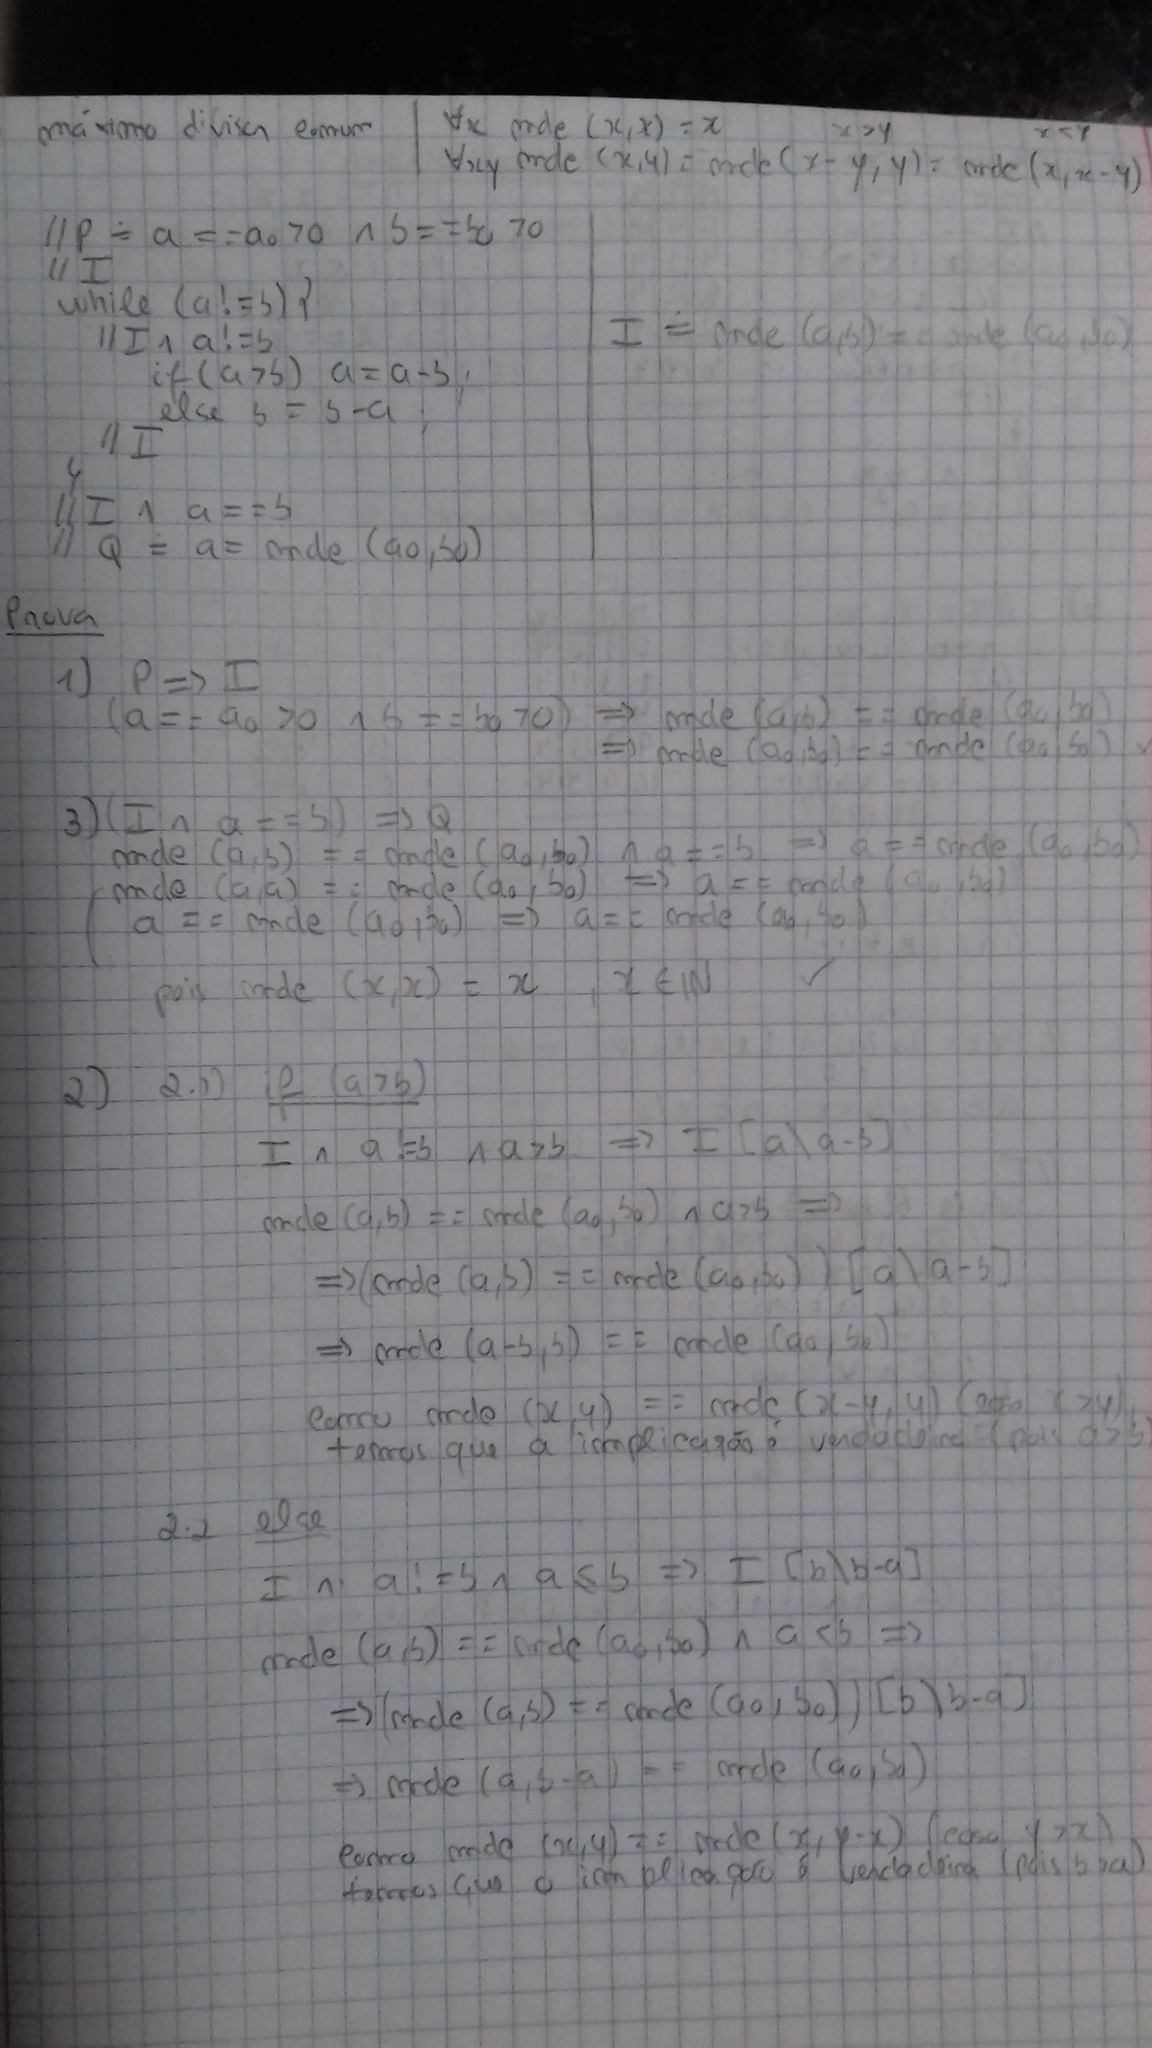 máximo divisor comum | ∀x mdc (x,x) = x    x>y    x<y
∀xy mdc (x,y) = mdc (x-y, y) = mdc (x, x-y)
// P ≐ a == a₀ >0 ∧ b == b₀ >0
// I
while (a != b) {
I ≐ mdc (a,b) == mdc (a₀,b₀)
// I ∧ a != b
if (a>b) a = a-b;
else b = b-a;
// I
}
// I ∧ a == b
// Q ≐ a = mdc (a₀,b₀)
Prova
1) P => I
(a == a₀ >0 ∧ b == b₀ >0) => mdc (a,b) == mdc (a₀,b₀)
=> mdc (a₀,b₀) == mdc (a₀,b₀) ✓
3) (I ∧ a == b) => Q
mdc (a,b) == mdc (a₀,b₀) ∧ a == b => a == mdc (a₀,b₀)
mdc (a,a) == mdc (a₀,b₀) => a == mdc (a₀,b₀)
a == mdc (a₀,b₀) => a == mdc (a₀,b₀)
pois mdc (x,x) = x , x ∈ ℕ ✓
2) 2.1) if (a>b)
I ∧ a != b ∧ a>b => I [a\a-b]
mdc (a,b) == mdc (a₀,b₀) ∧ a>b =>
=> (mdc (a,b) == mdc (a₀,b₀)) [a\a-b]
=> mdc (a-b,b) == mdc (a₀,b₀)
como mdc (x,y) == mdc (x-y,y) (caso x>y),
temos que a implicação é verdadeira (pois a>b)
2.2 else
I ∧ a != b ∧ a ≤ b => I [b\b-a]
mdc (a,b) == mdc (a₀,b₀) ∧ a<b =>
=> (mdc (a,b) == mdc (a₀,b₀)) [b\b-a]
=> mdc (a,b-a) == mdc (a₀,b₀)
como mdc (x,y) == mdc (x,y-x) (caso y>x)
temos que a implicação é verdadeira (pois b>a)